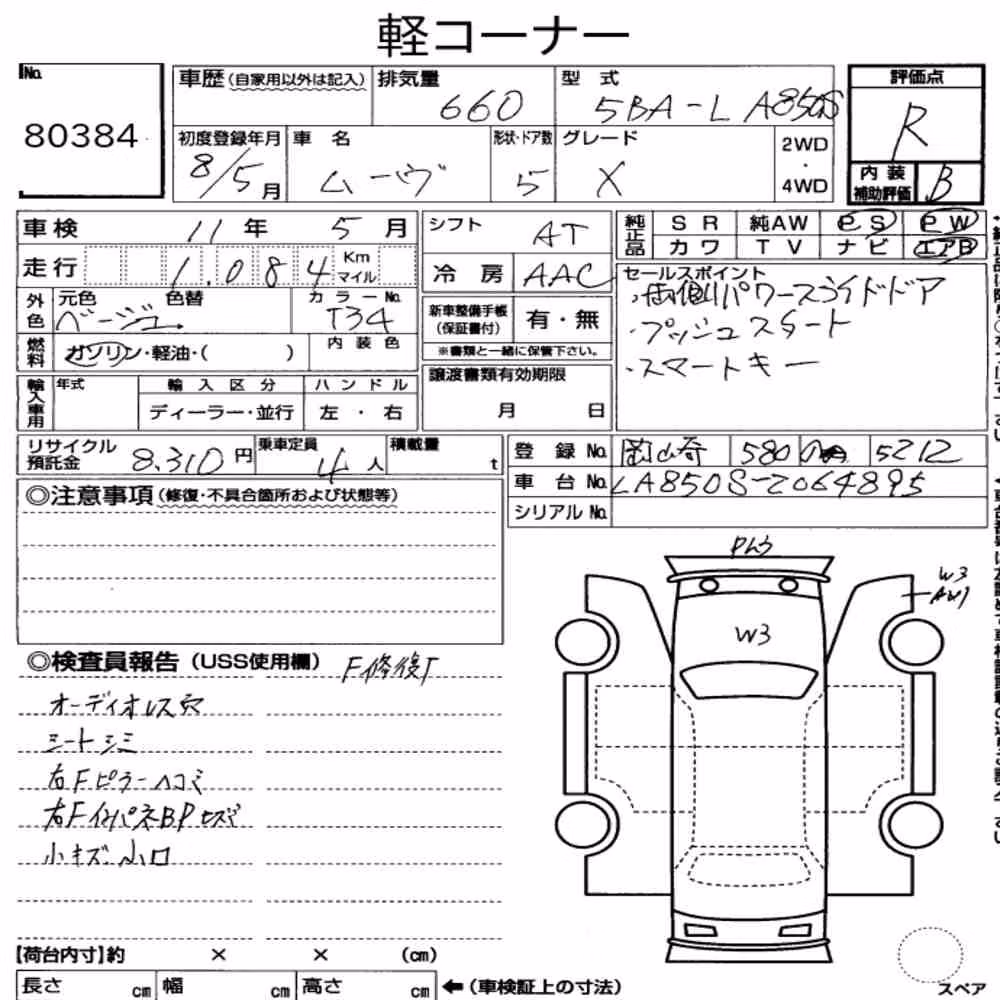 軽コーナー
No. 80384
車歴(自家用以外は記入) 排気量 660 型式 5BA-LA850S 評価点 R
初度登録年月 8/5月 車名 ムーヴ 形状・ドア数 5 グレード X 2WD・4WD 内装補助評価 B
車検 11年 5月 シフト AT 純正品 SR 純AW PS PW
走行 1.084 Km マイル 冷房 AAC カワ TV ナビ エアB
外色 元色 ベージュ 色替 カラーNo. T34 新車整備手帳(保証書付) 有・無 セールスポイント
・両側パワースライドドア
・プッシュスタート
・スマートキー
燃料 ガソリン・軽油・( ) 内装色 ※書類と一緒に保管下さい。
輸入車用 年式 輸入区分 ハンドル 譲渡書類有効期限
ディーラー・並行 左・右 月 日
リサイクル預託金 8.310円 乗車定員 4人 積載量 t 登録No. 岡山奇 580 5212
車台No. LA850S-2064895
シリアルNo.
◎注意事項(修復・不具合箇所および状態等)
◎検査員報告(USS使用欄) F修復
オーディオレス穴
シートシミ
右Fピラーヘコミ
右FインパネBP
小キズ 小凹
W3
W3
AW1
【荷台内寸】約 × × (cm)
長さ cm 幅 cm 高さ cm ←(車検証上の寸法)
スペア